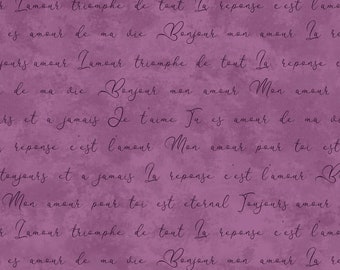 r L'amour triomphe de tout La reponse c'est l'amour
es amour de ma vie Bonjour mon amour Mon
jours amour L'amour triomphe de tout La reponse c'est
de ma vie Bonjour mon amour Mon amour
rs et a jamais Je t'aime Tu es amour de ma
reponse c'est l'amour Mon amour pour toi est
toujours et a jamais La reponse c'est l'amour
Mon amour pour toi est eternal Toujours amour
r L'amour triomphe de tout La reponse c'est l'am
de ma vie Bonjour mon amour Mon amour